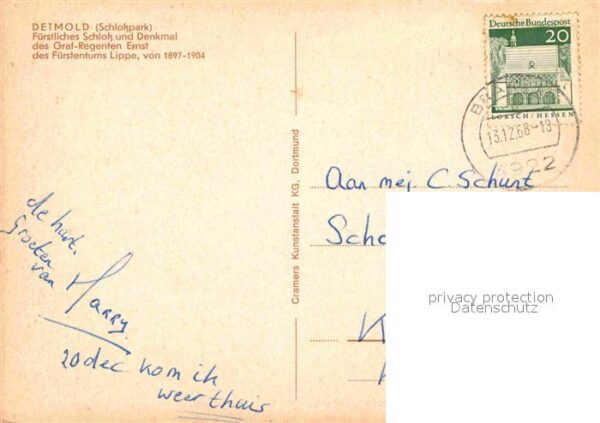 DETMOLD (Schloßpark)
Fürstliches Schloß und Denkmal
des Graf-Regenten Ernst
des Fürstentums Lippe, von 1897-1904
Deutsche Bundespost
20
LORSCH/HESSEN
13.12.68-19
4922
Cramers Kunstanstalt KG, Dortmund
Aan mej. C. Schunt
Sch
de hart.
Groeten
van Harry.
20 dec kom ik
weer thuis
privacy protection
Datenschutz